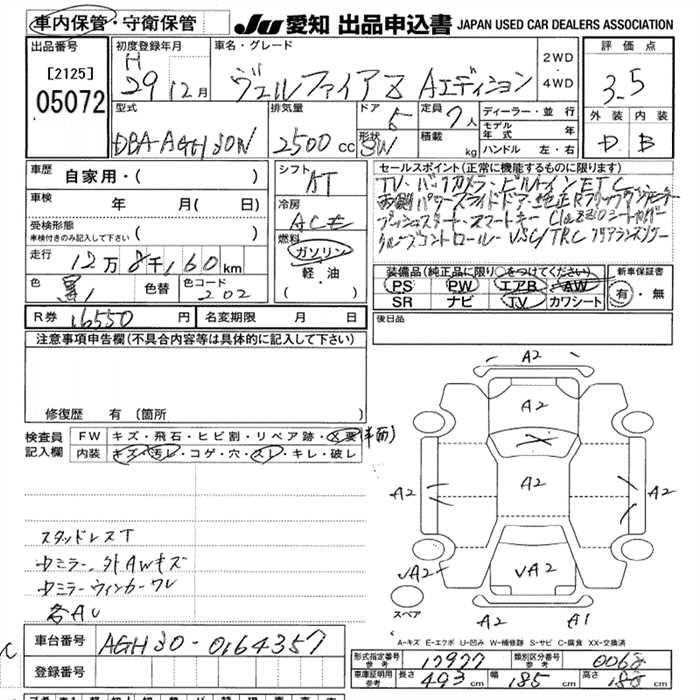 車内保管・守衛保管
JU 愛知 出品申込書 JAPAN USED CAR DEALERS ASSOCIATION
出品番号
[2125]
05072
初度登録年月
H
29 12月
車名・グレード
ヴェルファイア Z Aエディション
2WD
・
4WD
評価点
3.5
外装 内装
D B
型式
DBA-AGH30W
排気量
2500 cc
ドア
5
形状
SW
定員
7人
積載
kg
ディーラー・並行
モデル年式 年
ハンドル 左・右
車歴
自家用・( )
車検
年 月( )
受検形態
車検付きのみ記入して下さい
( )
走行
12万8千160km
色
黒
色替
色コード
202
シフト
AT
冷房
ACE
燃料
ガソリン
・
軽・油
( )
セールスポイント(正常に機能するものに限ります)
TV・バックカメラ・ビルトインETC
両側パワースライドドア・純正Rフリップダウンモニター
プッシュスタート・スマートキー Clazzioシートカバー
クルーズコントロール・VSC/TRC クリアランスソナー
装備品(純正品に限り○をつけてください)
PS PW エアB AW
SR ナビ TV カワシート
新車保証書
有・無
R券 16550円
名変期限 月 日
後日品
注意事項申告欄(不具合内容等は具体的に記入して下さい)
修復歴 有(箇所 )
検査員
記入欄
FW キズ・飛石・ヒビ割・リペア跡・X要
内装 キズ・汚レ・コゲ・穴・スレ・キレ・破レ
スタッドレスT
ドミラー、外AWキズ
ドミラーウィンカーワレ
各AU
A2
A2
X
A2
A2
A2
A2
A2
VA2
A2
A1
スペア
A-キズ E-エクボ U-凹み W-補修跡 S-サビ C-腐食 XX-交換済
車台番号
AGH30-0164357
登録番号
形式指定番号
参考
17927
類別区分番号
参考
車庫証明用
参考
長さ 493 cm
幅 185 cm
高さ cm